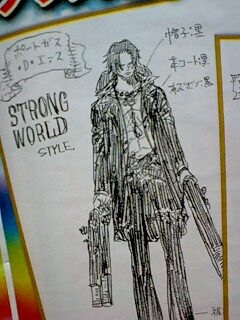 ポートガス
・D・エース
STRONG
WORLD
STYLE
帽子:黒
革コート:黒
ズボン:黒